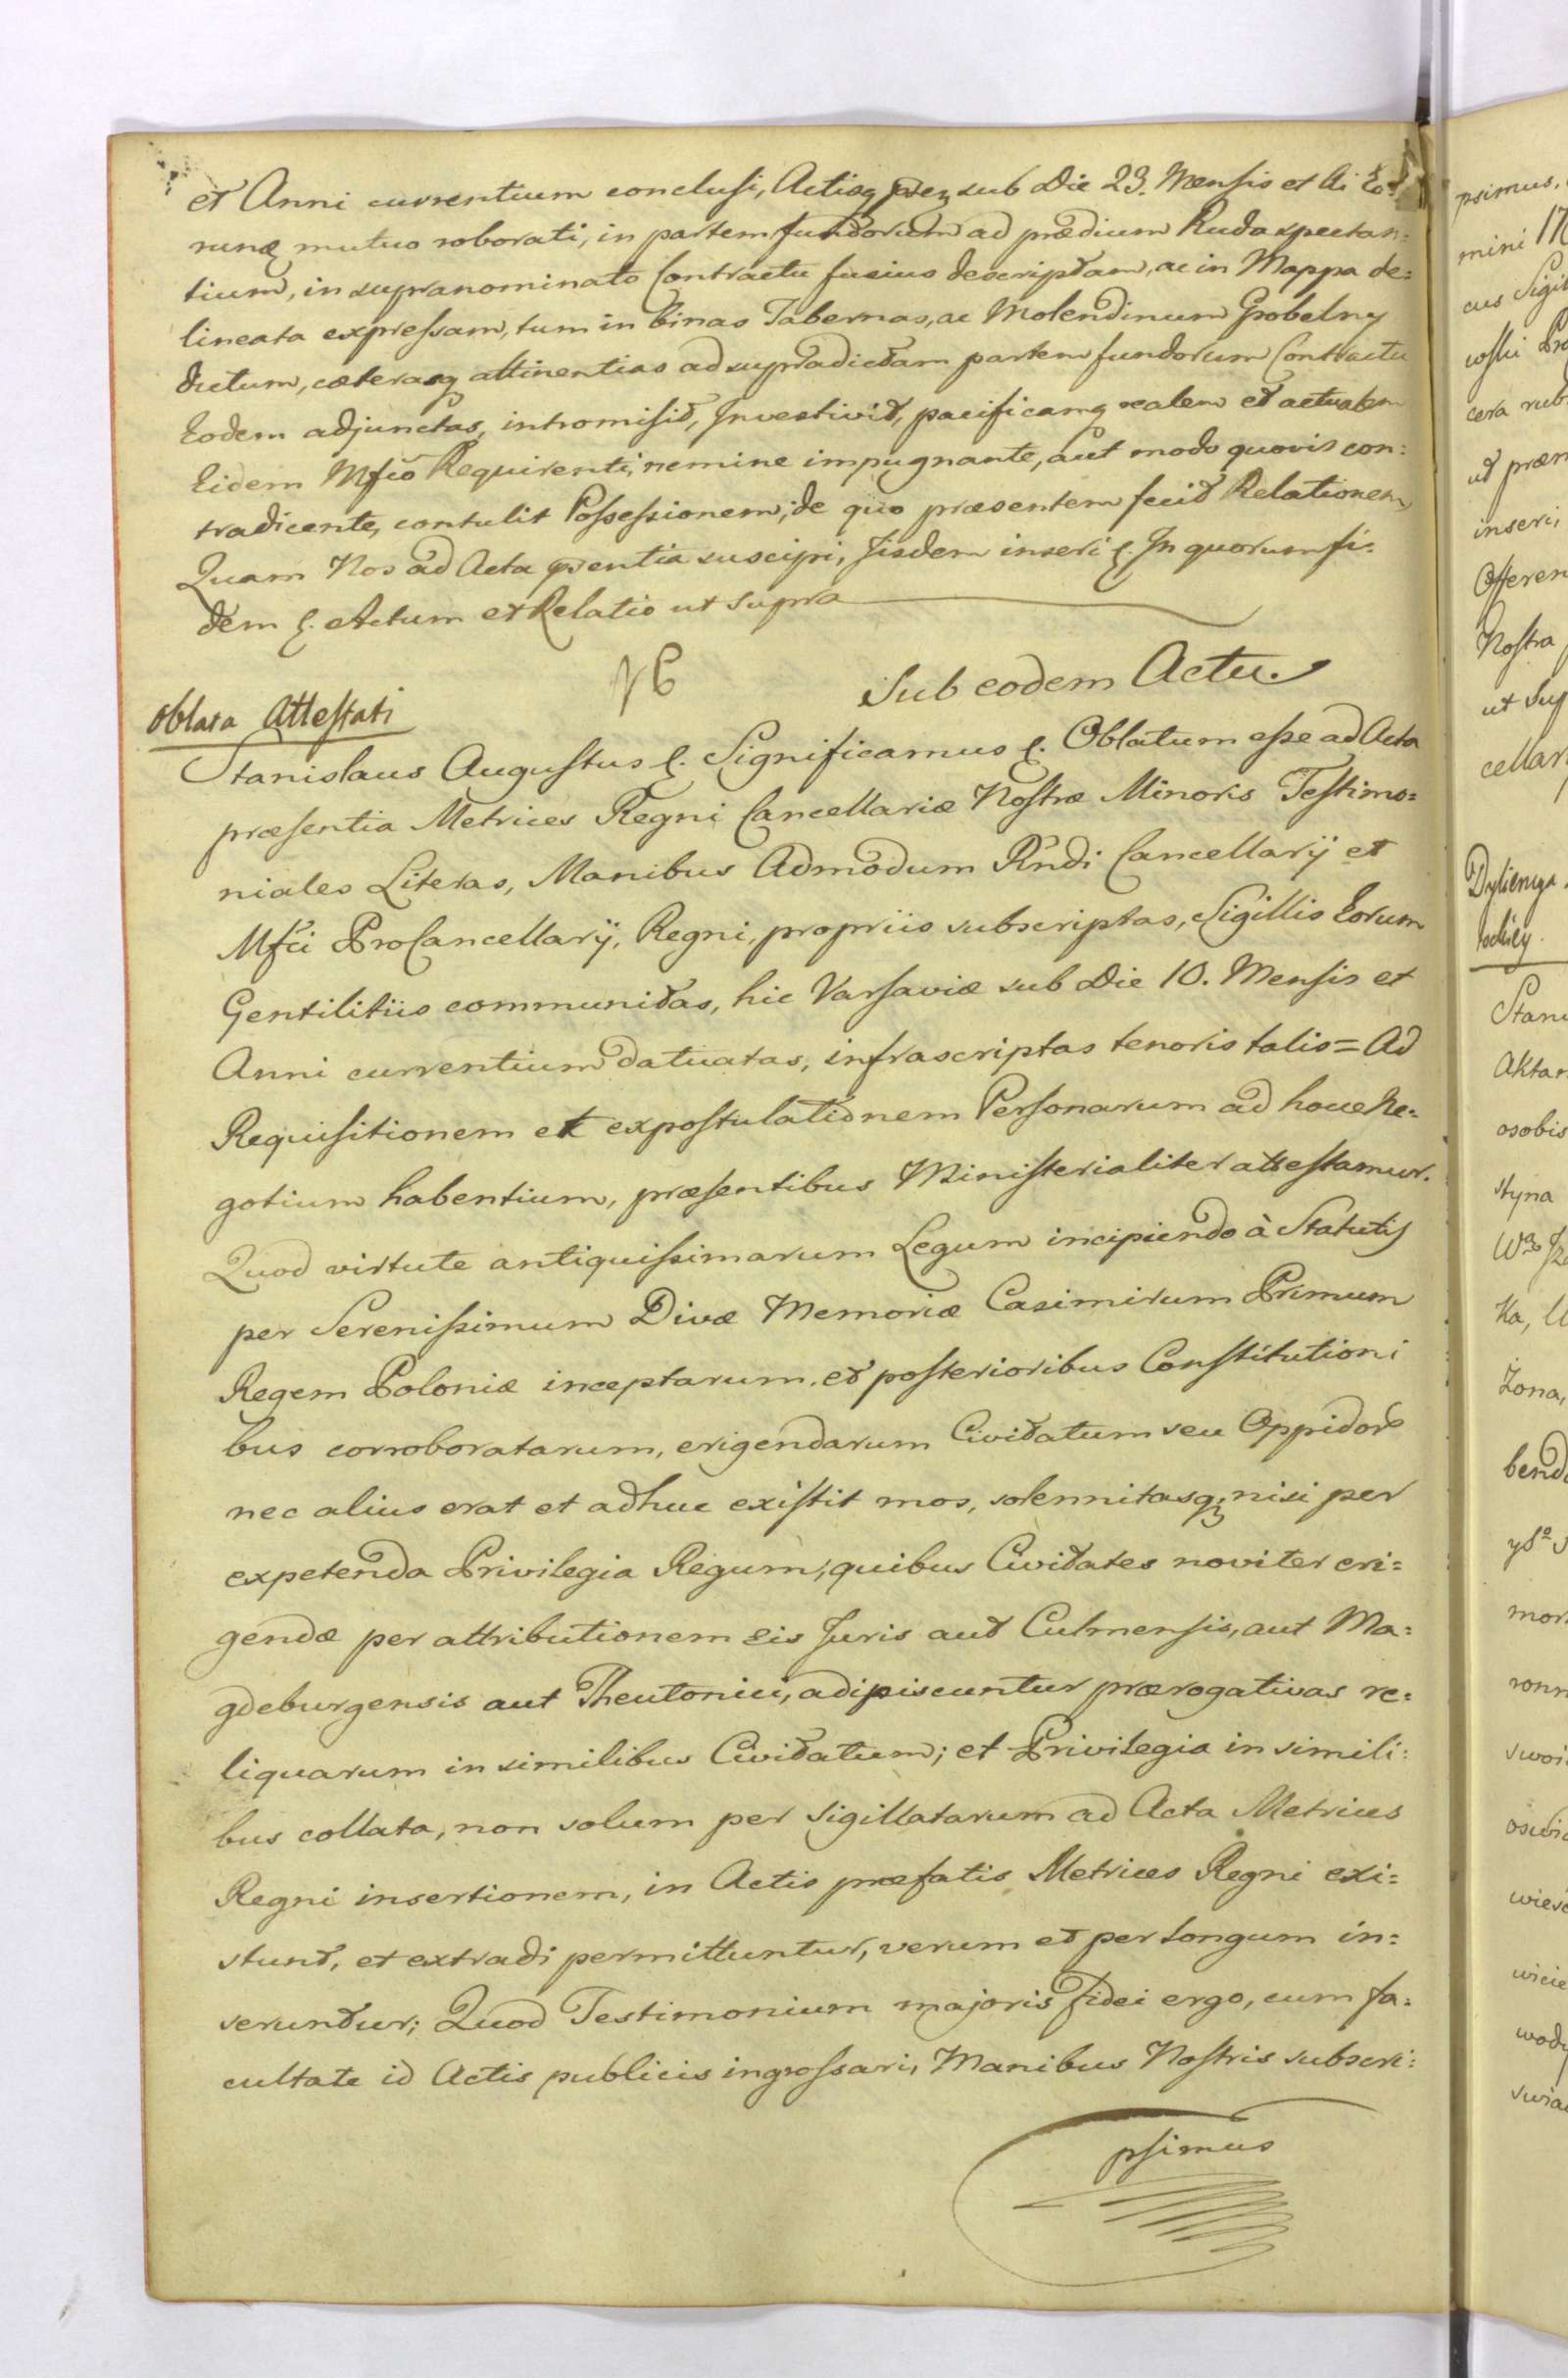 et Anni currentium conclusi, Actisq; sub Die 23. Mensis et Ai Eo-
rundē mutuo roborati, in partem fundorum ad prædium Ruda spectan:
tium, in supranominato Contractu fusius descriptam, ac in Mappa de:
lineata expressam, tum in binas Tabernas, ac Molendinum Grobelny
dictum, cæterasq; attinentias ad supradictam partem fundorum Contractu
Eodem adjunctas, intromisit, Investivit, pacificamq; realem et actualem
Eidem Mfco Requirenti, nemine impugnante, aut modo quovis con:
tradicente, contulit Possessionem; de quo præsentem fecit Relationem
Quam Nos ad Acta pñtia suscipi, Iisdem inseri &. In quorum fi:
dem &. Actum et Relatio ut supra
NB
Sub eodem Actu.
Oblata Attestati
Stanislaus Augustus &. Significamus &. Oblatum esse ad Acta
præsentia Metrices Regni Cancellariæ Nostræ Minoris Testimo=
niales Literas, Manibus Admodum Rndi Cancellarij et
Mfci ProCancellarij, Regni, propriis subscriptas, Sigillis Eorum
Gentilitiis communitas, hic Varsaviæ sub Die 10. Mensis et
Anni currentium datuatas, infrascriptas tenoris talis = Ad
Requisitionem et expostulationem Personarum ad hocce Ne=
gotium habentium, præsentibus Ministerialiter attestamur.
Quod virtute antiquissimarum Legum incipiendo à Statutis
per Serenissimum Divæ Memoriæ Casimirum Primum
Regem Poloniæ inceptarum, et posterioribus Constitutioni
bus corroboratarum, erigendarum Civitatum seu Oppidor
nec alius erat et adhuc existit mos, solennitasq; nisi per
expetenda Privilegia Regum; quibus Civitates noviter eri=
gendæ per attributionem eis Juris aut Culmensis, aut Ma:
gdeburgensis aut Theutonici, adipiscuntur prærogativas re:
liquarum in similibus Civitatum; et Privilegia in simili:
bus collata, non solum per Sigillatarum ad Acta Metrices
Regni insertionem, in Actis præfatis Metrices Regni exi=
stunt, et extradi permittuntur, verum et per longum in=
seruntur; Quod Testimonium majoris fidei ergo, cum fa:
cultate id Actis publicis ingrossari, Manibus Nostris subscri:
psimus
psimus,
mini 17
cus Sigil
wski Pro
cera rub
ut præm
inseri,
Offeren
Nostra
ut Sup
cellar
Stani
Aktam
osobis
styna
Ka, U
Żona,
bend
mor
ronn
swoi
oswia
wiesc
wicie
wody
swia